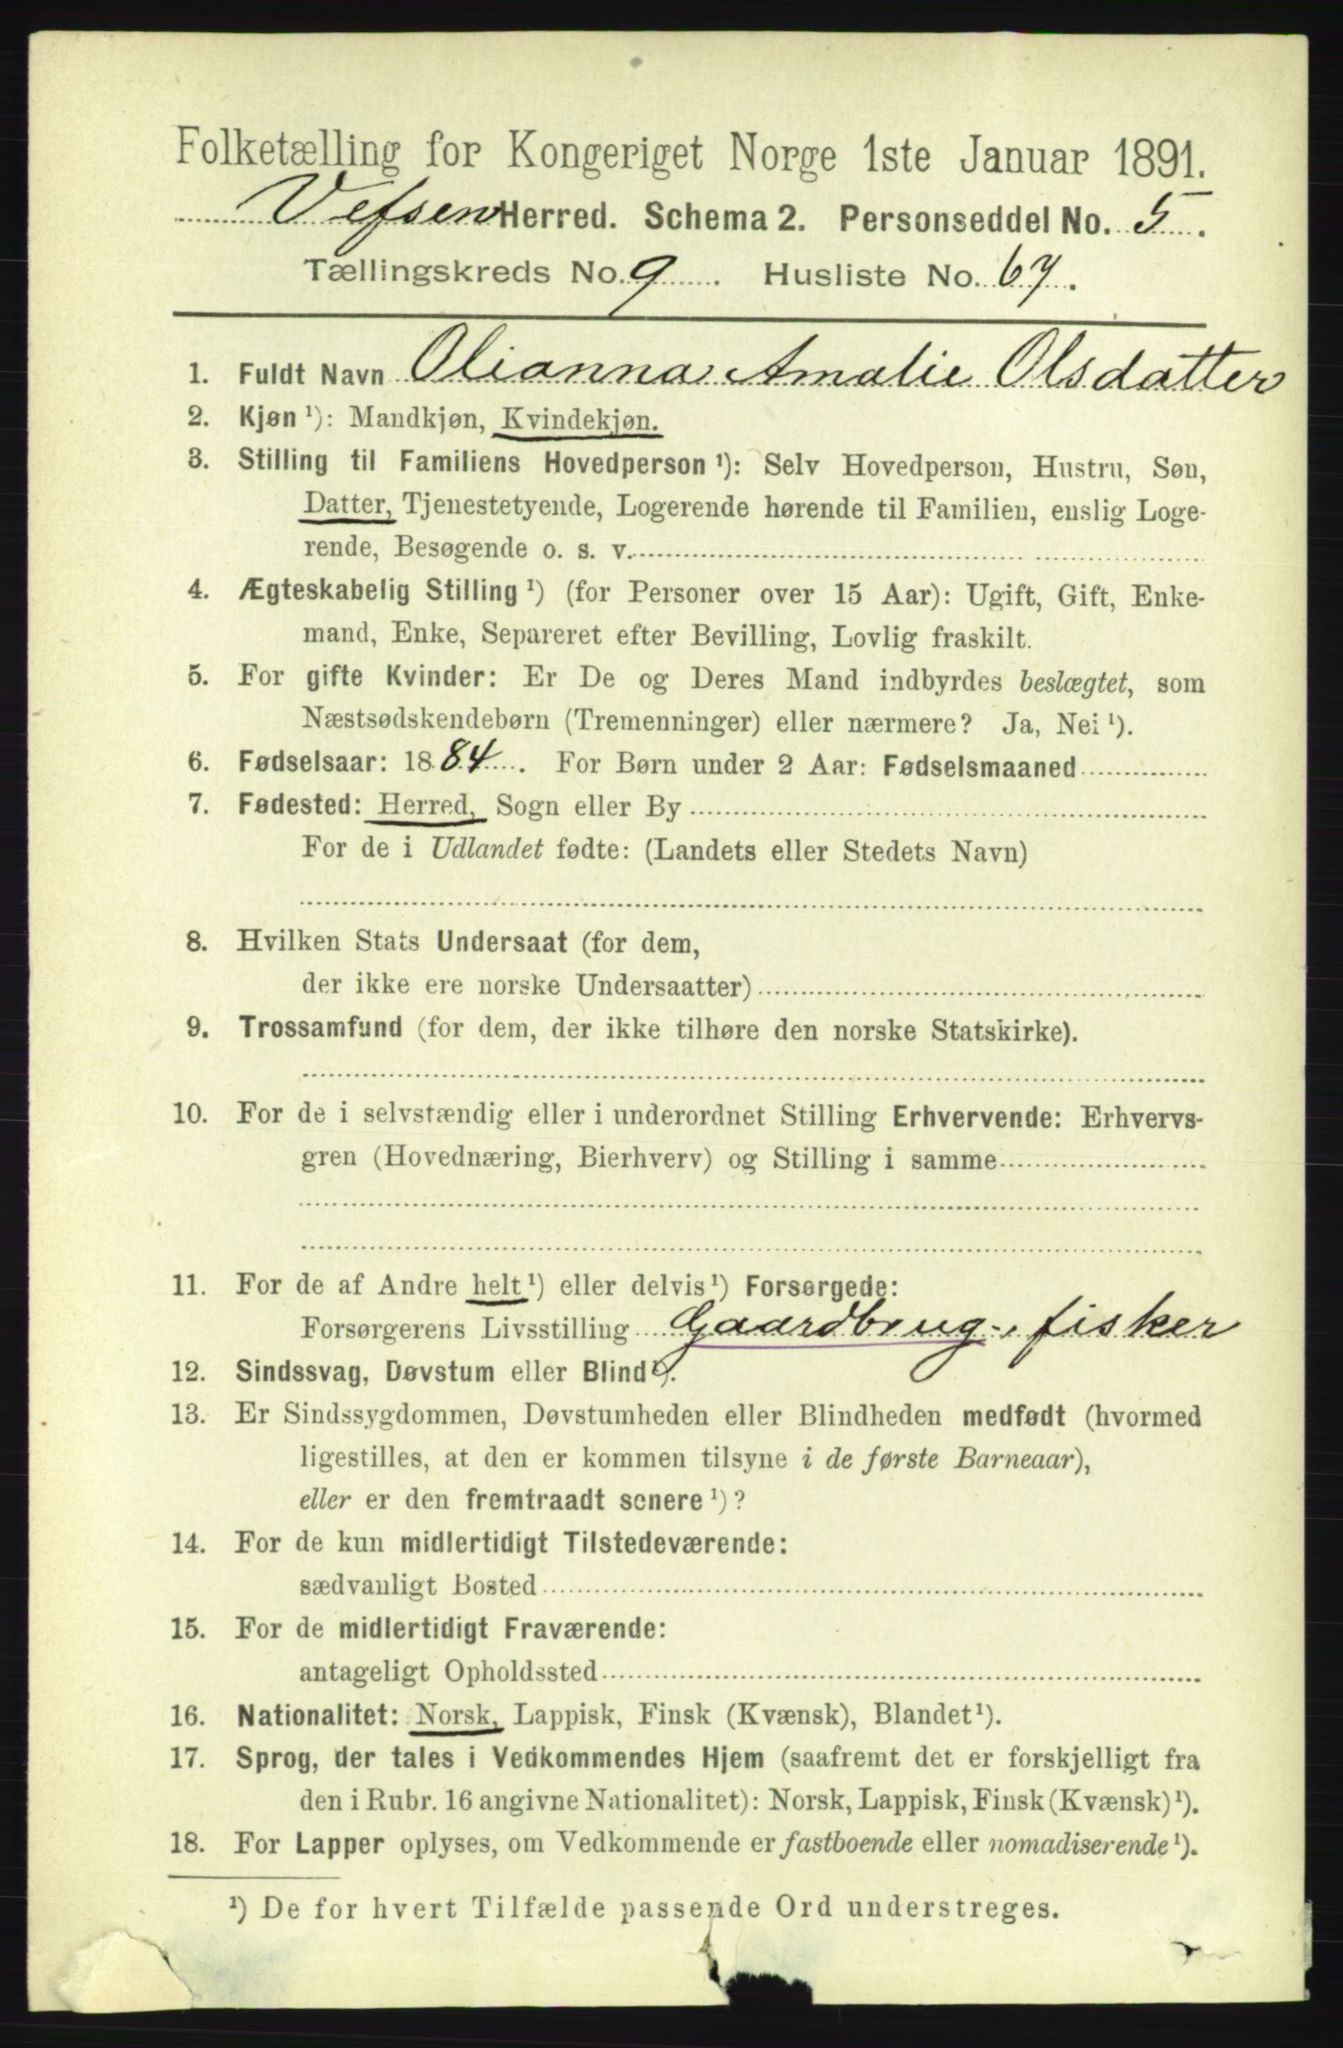 Folketælling for Kongeriget Norge 1ste Januar 1891.
Vefsen Herred. Schema 2. Personseddel No. 5.
Tællingskreds No. 9. Husliste No. 67.
1. Fuldt Navn Olianna Amalie Olsdatter
2. Kjøn ¹): Mandkjøn, Kvindekjøn.
3. Stilling til Familiens Hovedperson ¹): Selv Hovedperson, Hustru, Søn,
Datter, Tjenestetyende, Logerende hørende til Familien, enslig Loge-
rende, Besøgende o. s. v.
4. Ægteskabelig Stilling ¹) (for Personer over 15 Aar): Ugift, Gift, Enke-
mand, Enke, Separeret efter Bevilling, Lovlig fraskilt.
5. For gifte Kvinder: Er De og Deres Mand indbyrdes beslægtet, som
Næstsødskendebørn (Tremenninger) eller nærmere? Ja, Nei ¹).
6. Fødselsaar: 1884. For Børn under 2 Aar: Fødselsmaaned
7. Fødested: Herred, Sogn eller By
For de i Udlandet fødte: (Landets eller Stedets Navn)
8. Hvilken Stats Undersaat (for dem,
der ikke ere norske Undersaatter)
9. Trossamfund (for dem, der ikke tilhøre den norske Statskirke).
10. For de i selvstændig eller i underordnet Stilling Erhvervende: Erhvervs-
gren (Hovednæring, Bierhverv) og Stilling i samme
11. For de af Andre helt ¹) eller delvis ¹) Forsørgede:
Forsørgerens Livsstilling Gaardbrug-, fisker
12. Sindssvag, Døvstum eller Blind ¹).
13. Er Sindssygdommen, Døvstumheden eller Blindheden medfødt (hvormed
ligestilles, at den er kommen tilsyne i de første Barneaar),
eller er den fremtraadt senere ¹)?
14. For de kun midlertidigt Tilstedeværende:
sædvanligt Bosted
15. For de midlertidigt Fraværende:
antageligt Opholdssted
16. Nationalitet: Norsk, Lappisk, Finsk (Kvænsk), Blandet ¹).
17. Sprog, der tales i Vedkommendes Hjem (saafremt det er forskjelligt fra
den i Rubr. 16 angivne Nationalitet): Norsk, Lappisk, Finsk (Kvænsk) ¹).
18. For Lapper oplyses, om Vedkommende er fastboende eller nomadiserende ¹).
¹) De for hvert Tilfælde passende Ord understreges.